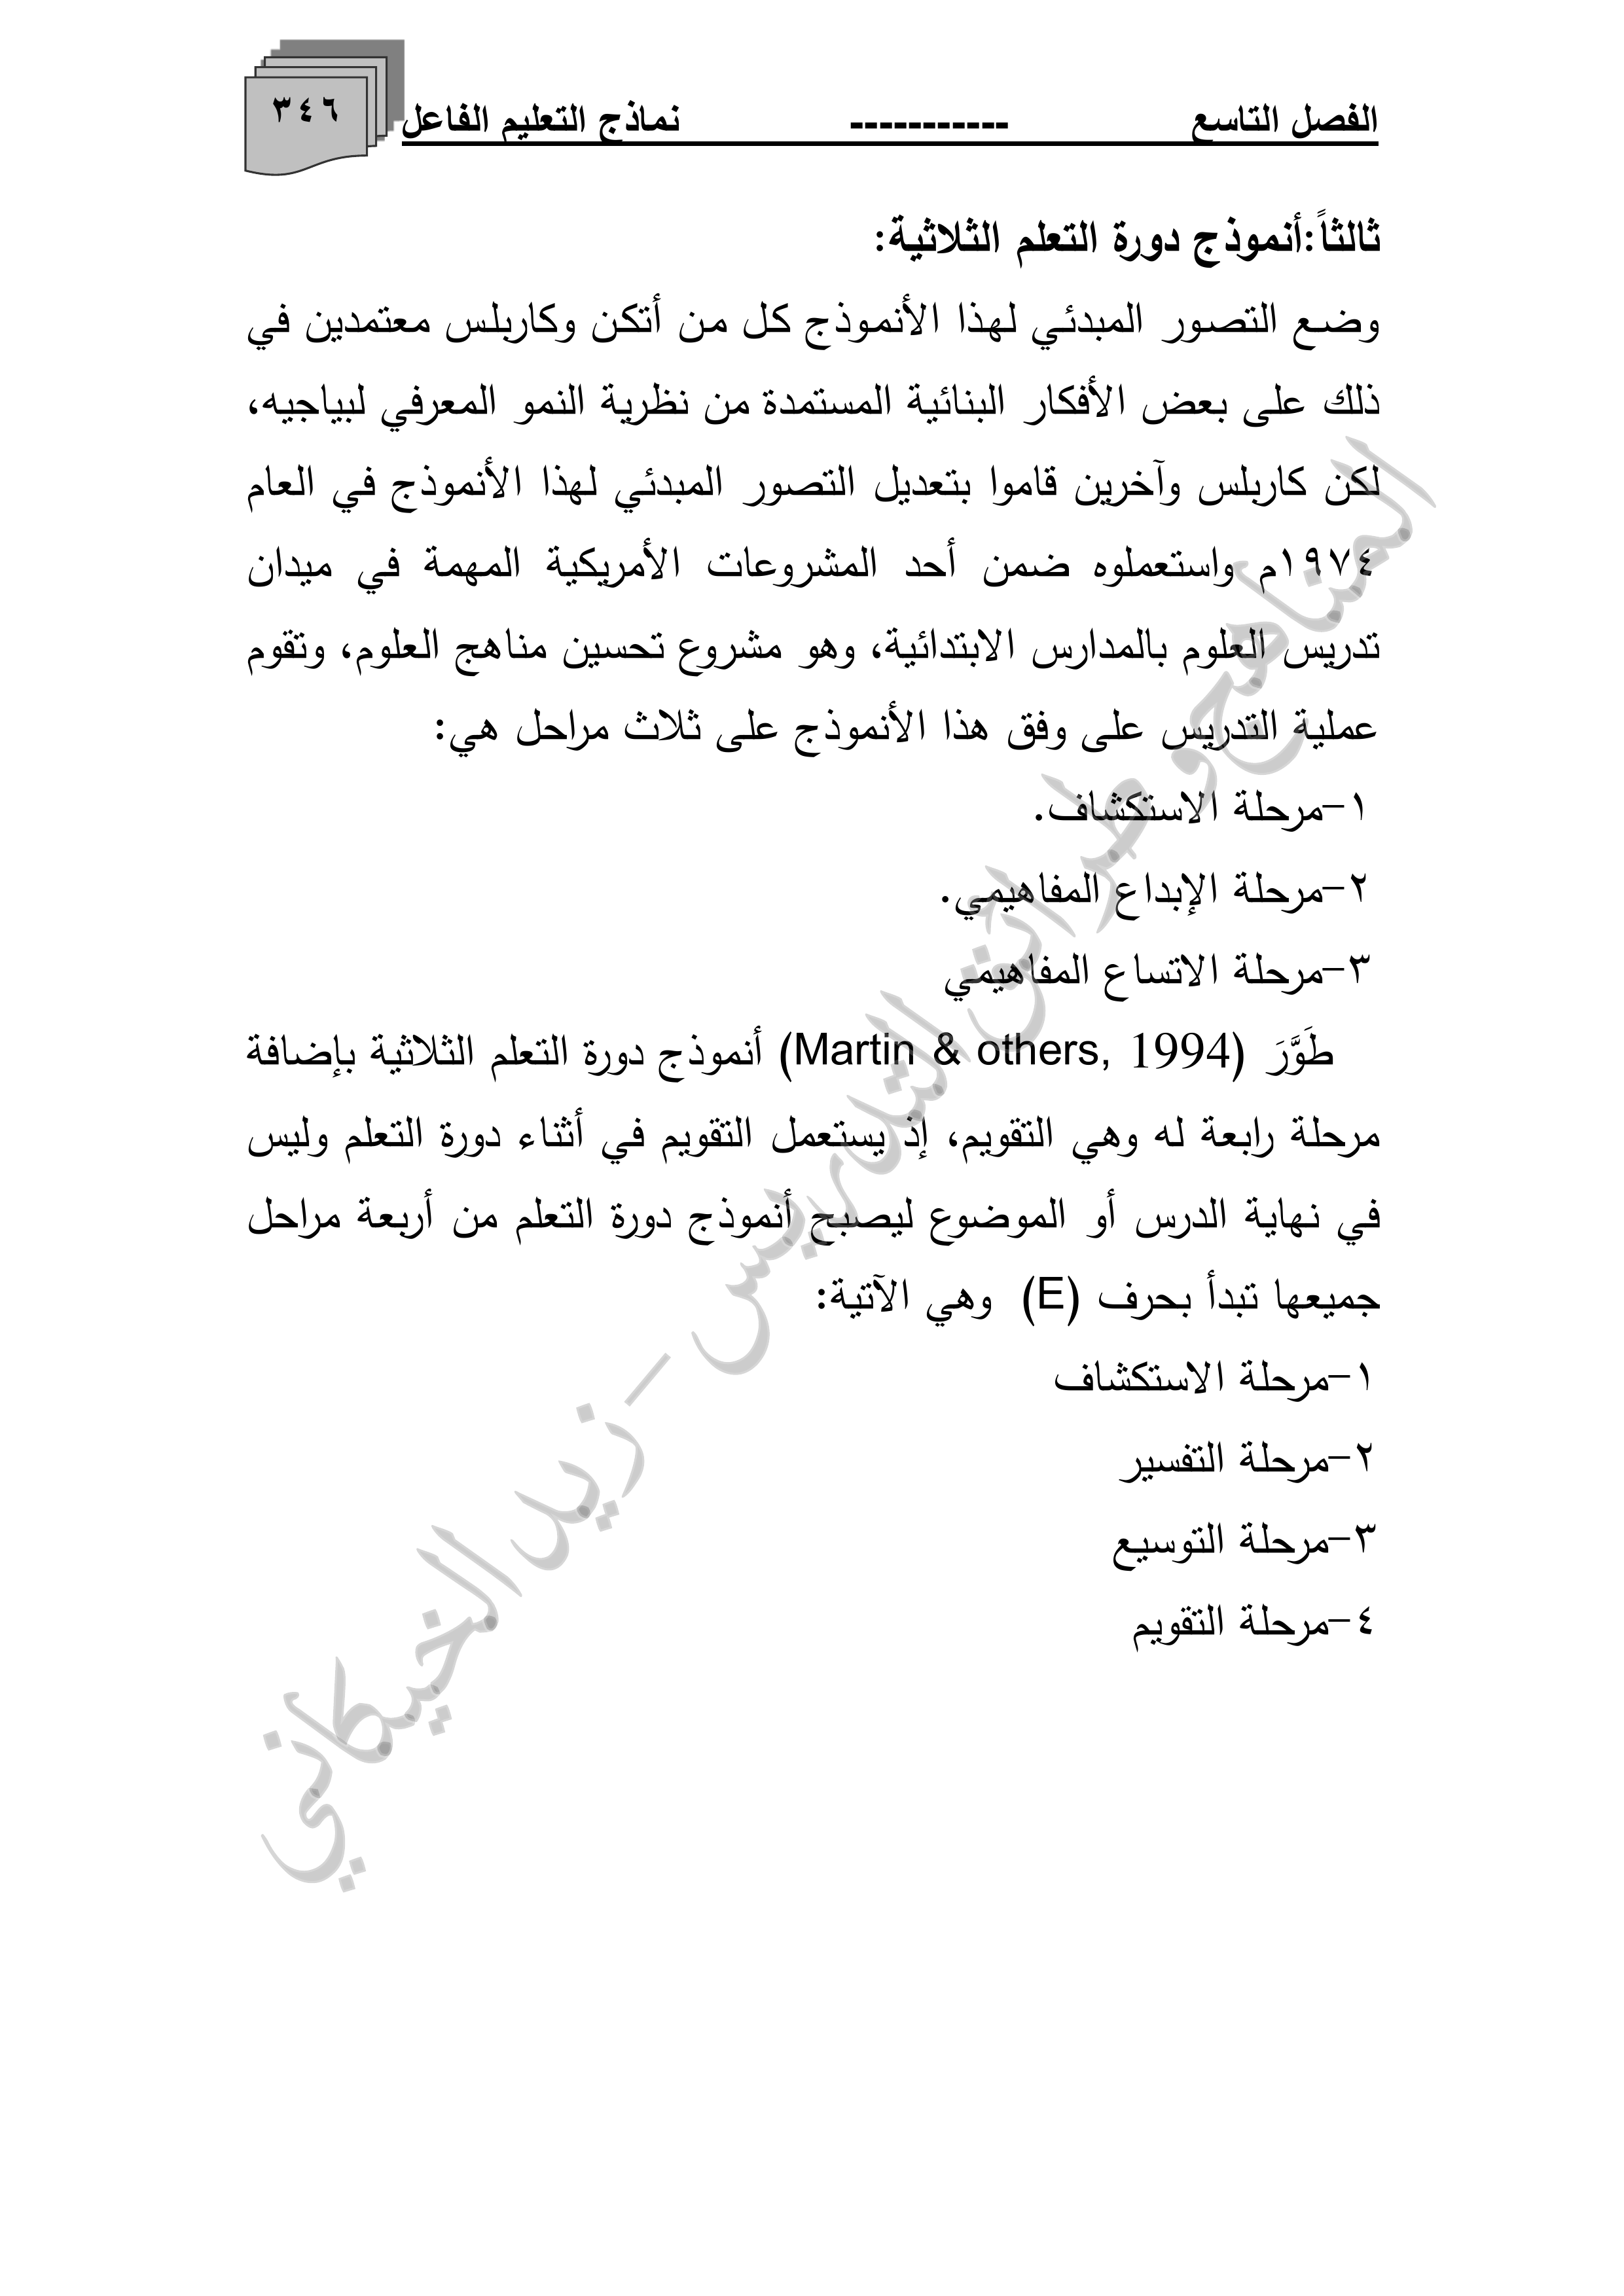 الفصل التاسع ----------- نماذج التعليم الفاعل ٣٤٦
ثالثاً:أنموذج دورة التعلم الثلاثية:
وضع التصور المبدئي لهذا الأنموذج كل من أتكن وكاربلس معتمدين في
ذلك على بعض الأفكار البنائية المستمدة من نظرية النمو المعرفي لبياجيه،
لكن كاربلس وآخرين قاموا بتعديل التصور المبدئي لهذا الأنموذج في العام
١٩٧٤م واستعملوه ضمن أحد المشروعات الأمريكية المهمة في ميدان
تدريس العلوم بالمدارس الابتدائية، وهو مشروع تحسين مناهج العلوم، وتقوم
عملية التدريس على وفق هذا الأنموذج على ثلاث مراحل هي:
١-مرحلة الاستكشاف.
٢-مرحلة الإبداع المفاهيمي.
٣-مرحلة الاتساع المفاهيمي
طَوَّرَ (Martin & others, 1994) أنموذج دورة التعلم الثلاثية بإضافة
مرحلة رابعة له وهي التقويم، إذ يستعمل التقويم في أثناء دورة التعلم وليس
في نهاية الدرس أو الموضوع ليصبح أنموذج دورة التعلم من أربعة مراحل
جميعها تبدأ بحرف (E) وهي الآتية:
١-مرحلة الاستكشاف
٢-مرحلة التفسير
٣-مرحلة التوسيع
٤-مرحلة التقويم
المناهج وطرائق التدريس - زيد الخيكاني